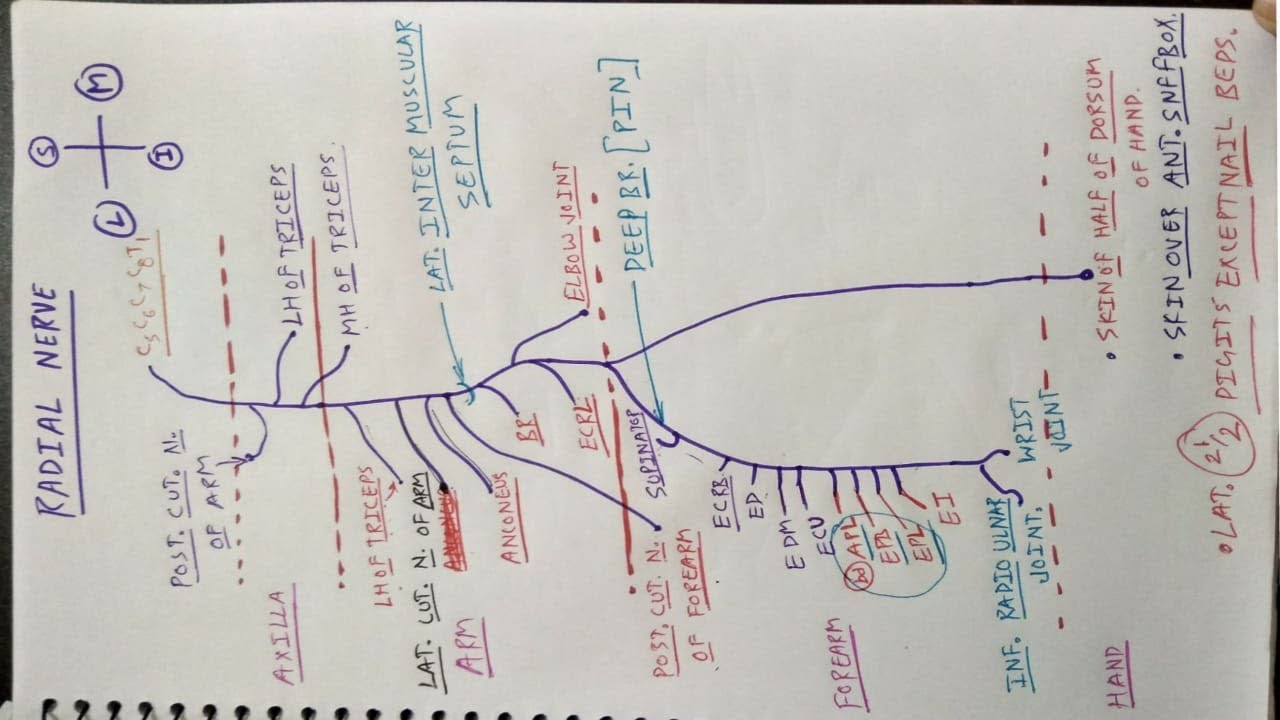 RADIAL NERVE
S
M
L
I
C5 C6 C7 C8 T1
POST. CUT. N.
OF ARM
AXILLA
LH OF TRICEPS
MH OF TRICEPS.
LAT. INTER MUSCULAR
SEPTUM
LH OF TRICEPS
LAT. CUT. N. OF ARM
ANCONEUS
ARM
BR
ECRL
ELBOW JOINT
DEEP BR. [PIN]
POST. CUT. N.
OF FOREARM
SUPINATOR
ECRB
ED
EDM
ECU
APL
EPL
EI
FOREARM
INF. RADIO ULNAR
JOINT.
WRIST
JOINT
HAND
• SKIN OF HALF OF DORSUM
OF HAND.
• SKIN OVER ANT. SNFFBOX.
• LAT. 2 1/2 DIGITS EXCEPT NAIL BEPS.